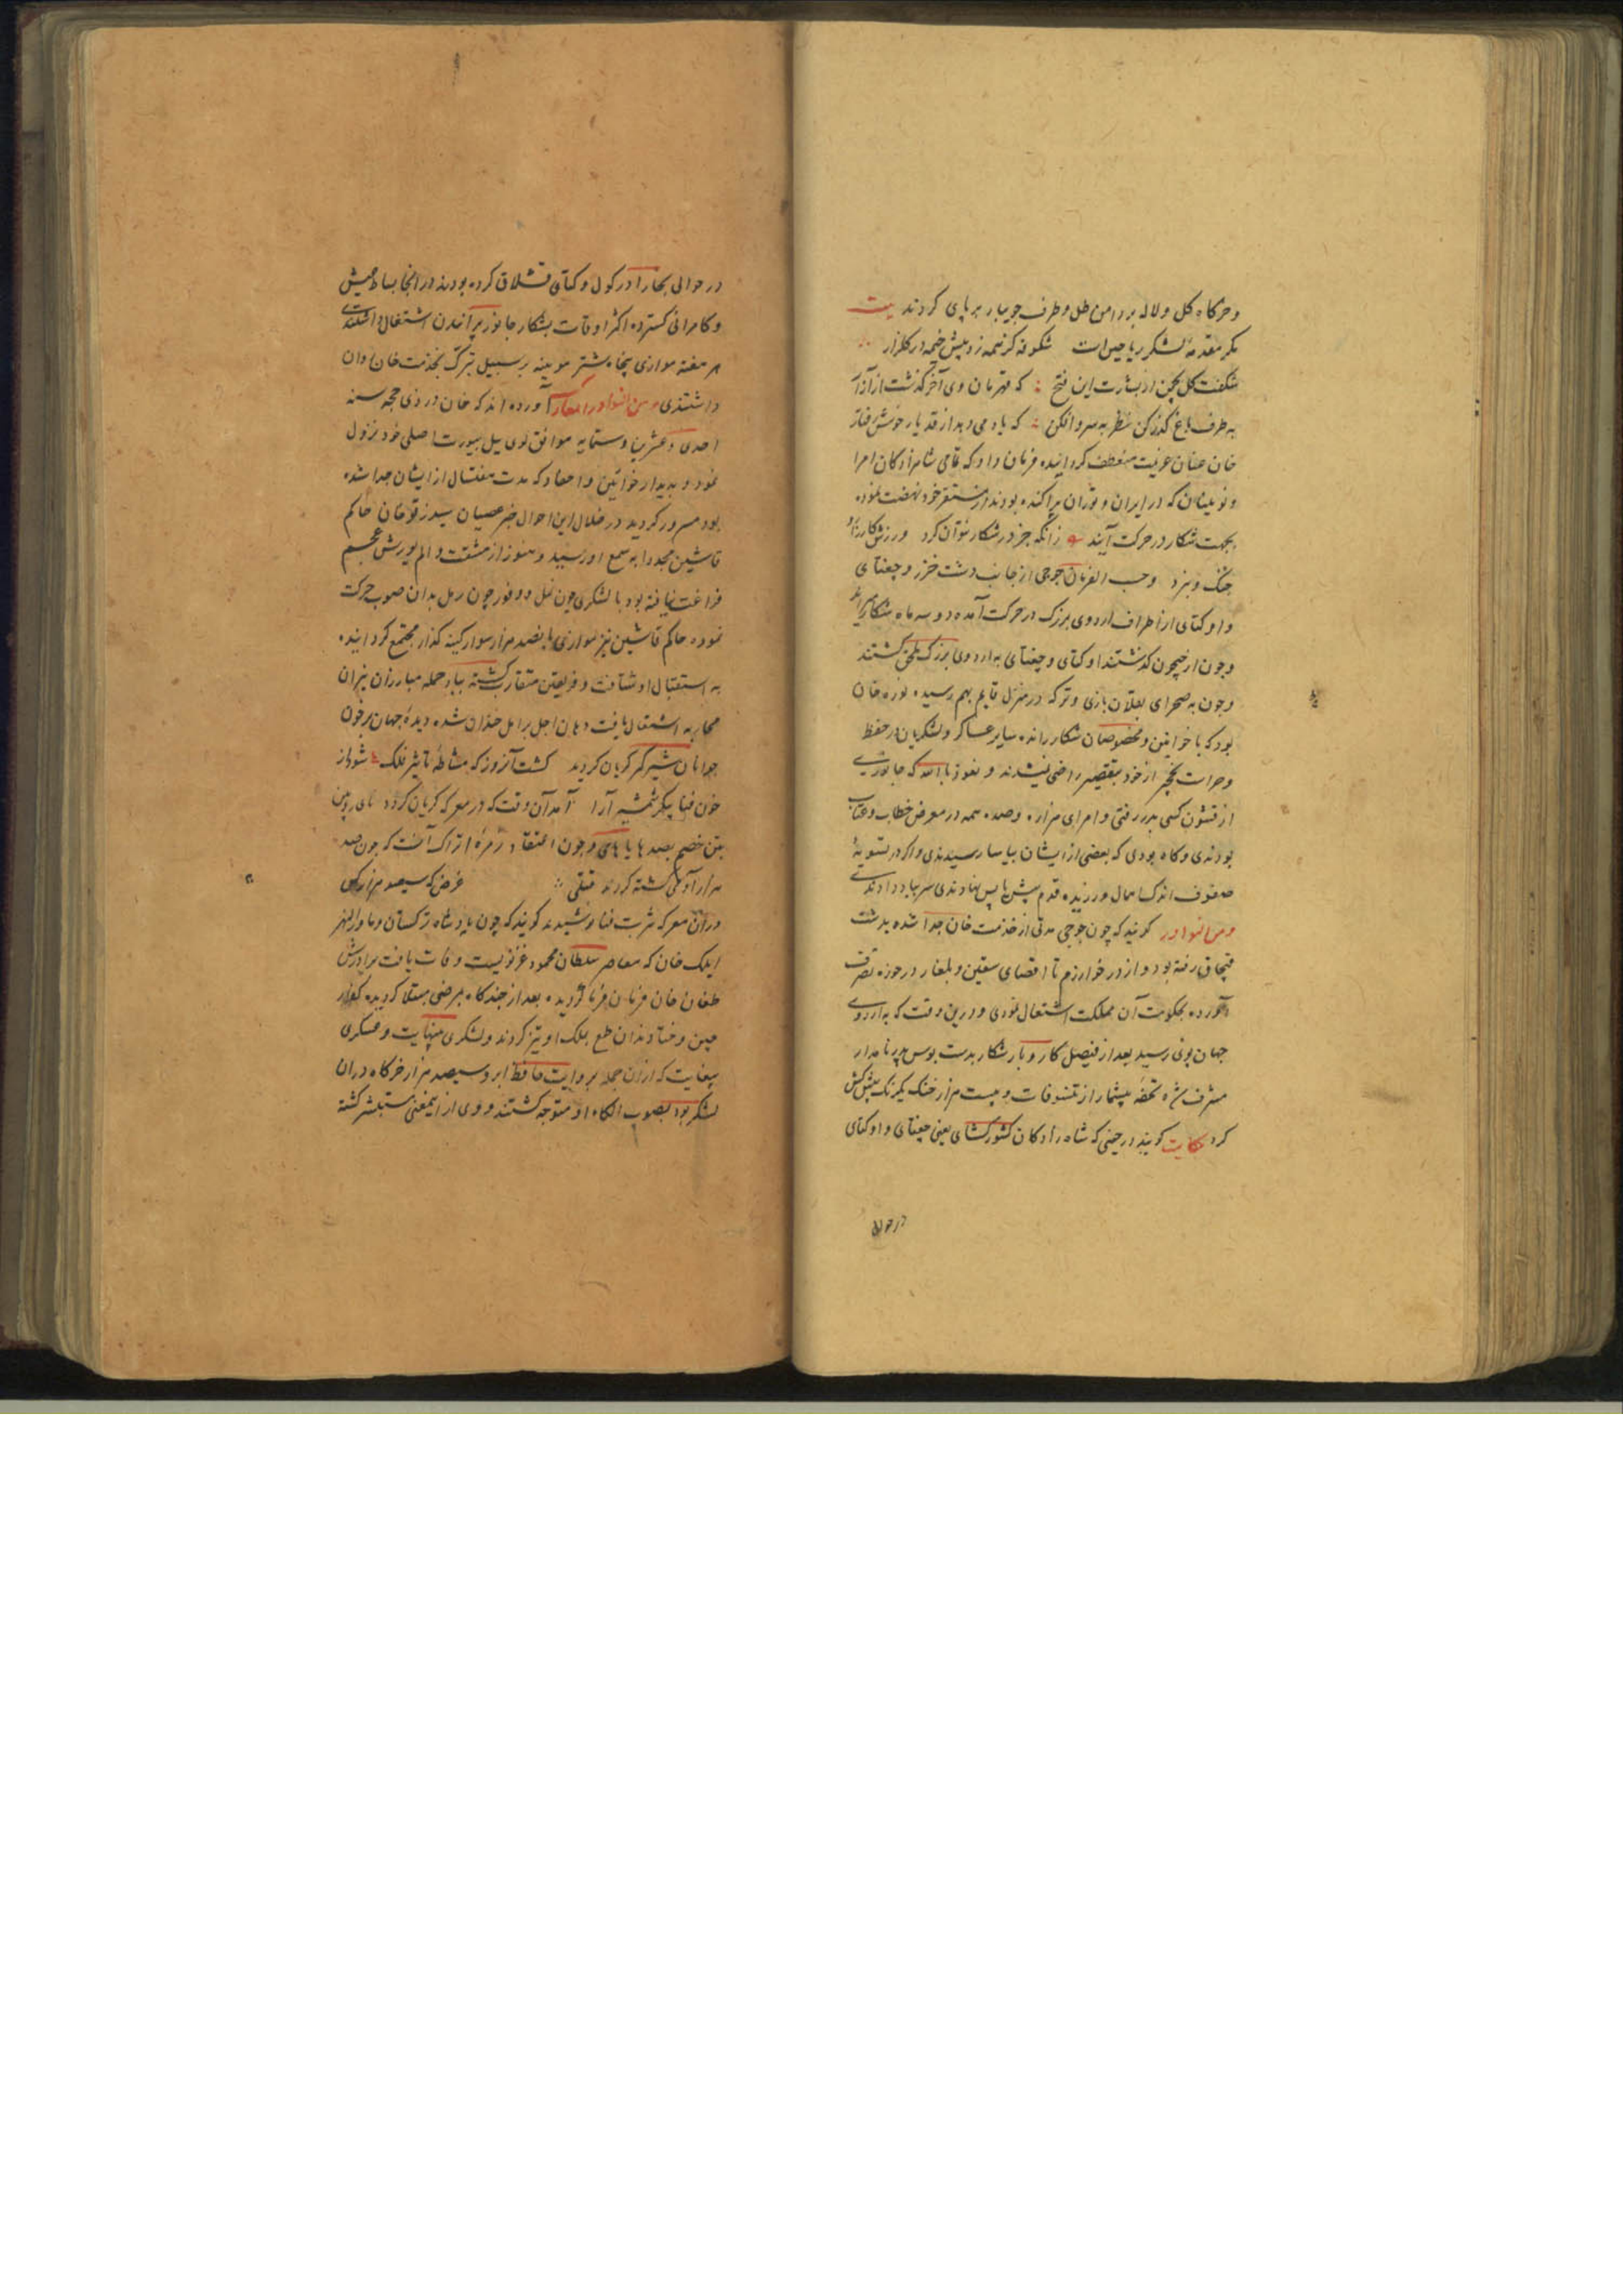 و خرگاه گل و لاله بر دامن طل و طرف جویبار بر پای کردند بیت
مگر مقدمهٔ لشکر ریاحین است شکوفه کز همه زد پیش خیمه در گلزار
شگفت گل بچمن از بشارت این فتح که قهرمان دی آخر گذشت از آزار
به طرف باغ گذر کن نظر به سرو افکن که یاد می دهد از قد یار خوش رفتار
خان عنان عزیمت منعطف گردانیده فرمان داد که تمامی شاهزادگان امرا
و نویینان که در ایران و توران پراکنده بودند از مستقر خود نهضت نموده
بجهت شکار در حرکت آیند زانکه جز در شکار نتوان کرد ورزش کارزار و
جنگ و نبرد و حسب الفرمان جوجی از جانب دشت خزر و جغتای
و اوکتای از اطراف اردوی بزرگ در حرکت آمده دو سه ماه شکار
و چون از جیحون گذشتند اوکتای و جغتای به اردوی بزرگ ملحق گشتند
و چون به صحرای بقلان بازی و ترکه در منزل قایم بهم رسیده نوره خان
بود که با خواتین و مخصوصان شکار رانده سایر عساکر و لشکریان در حفظ
و حراست نخجیر از خود بتقصیر راضی نمیشدند و نعوذ بالله که جانوری
از قشون کسی بدر رفتی و امرای هزاره و صده همه در معرض خطاب و عتاب
بودندی و گاه بودی که بعضی از ایشان بیاسا رسیدندی و اگر در تسویهٔ
صفوف اندک اهمال ورزیده قدم پیش یا پس نهادندی سر بباد دادندی
و من النوادر گویند که چون جوجی مدتی از خدمت خان جدا شده بدشت
قبچاق رفته بود و از در خوارزم تا اقصای سقین و بلغار در حوزه تصرف
آورده بحکومت آن مملکت اشتغال نمودی و درین وقت که به اردوی
جهان پوی رسید بعد از فیصل کار و بار شکار بدست بوس پدر نامدار
مشرف شده تحفهٔ بیشمار از تنسوقات و بیست هزار خنگ یکرنگ پیشکش
کرد حکایت گویند در حینی که شاه زادگان کشورگشای یعنی جغتای و اوکتای
در حوالی
در حوالی بخارا در کول و کتای قشلاق کرده بودند در آنجا بساط عیش
و کامرانی گسترده اکثر اوقات بشکار جانور پرانیدن اشتغال داشتندی
هر هفته موازی پنجاه شتر موینه بر سبیل تبرک بخدمت خان روان
داشتندی و من النوادر المعارک آورده اند که خان در ذی حجه سنه
احدی و عشرین و ستمایه موافق لوی ییل بیورت اصلی خود نزول
نمود و بدیدار خواتین و احفاد که مدت هفتسال از ایشان جدا شده
بود مسرور گردید در خلال این احوال خبر عصیان سیدرقو خان حاکم
قاشین مجددا به سمع او رسید و هنوز از مشقت و الم یورش عجم
فراغت نیافته بود با لشکری چون نمل و وفور چون رمل بدان صوب حرکت
نموده حاکم قاشین نیز موازی پانصد هزار سوار کینه گذار مجتمع گردانیده
به استقبال او شتافت و فریقین متقارب گشته بباد حمله مبارزان نیران
محاربه اشتعال یافت دهان اجل بر امل خندان شده دیدهٔ جهان بر خون
جوانان شیر گیر گریان گردید گشت آنروز که مشاطهٔ تاثیر فلک شود از
خون فنا پیکر شمشیر آرا آمد آن وقت که در معرکه گریان گردد نای رویین
بتن خصم بصد هایا های و چون اعتقاد زمرهٔ اتراک آنست که چون صد
هزار آدمی کشته گردند قبقی غرض که سیصد هزار کس
در آن معرکه شربت فنا نوشیدند گویند که چون پادشاه ترکستان و ماورالنهر
ایلک خان که معاصر سلطان محمود غزنویست وفات یافت برادرش
طغان خان فرمان فرما گردیده بعد از چند گاه بمرضی مبتلا گردید کفار
چین و ختا دندان طمع بملک او تیز کردند و لشکری بینهایت و عسکری
بیغایت که از آن جمله بروایت حافظ ابرو سیصد هزار خرگاه در ان
لشکر بود بصوب الکاء او متوجه گشتند و وی از اینمعنی مستبشر گشته